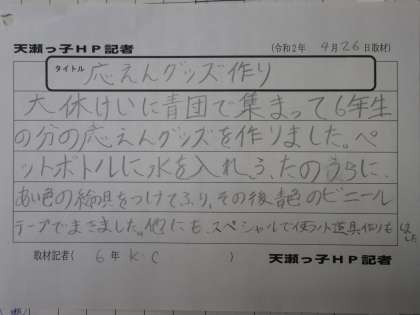 天瀬っ子HP記者 (令和2年 9月26日取材)
タイトル 応えんグッズ作り
大休けいに青団で集まって6年生
の分の応えんグッズを作りました。ペ
ットボトルに水を入れ、ふたのうらに、
あい色の絵具をつけてふり、その後青色のビニール
テープでまきました。他にも、スペシャルで使う小道具作りも しました
取材記者( 6年 K・C ) 天瀬っ子HP記者